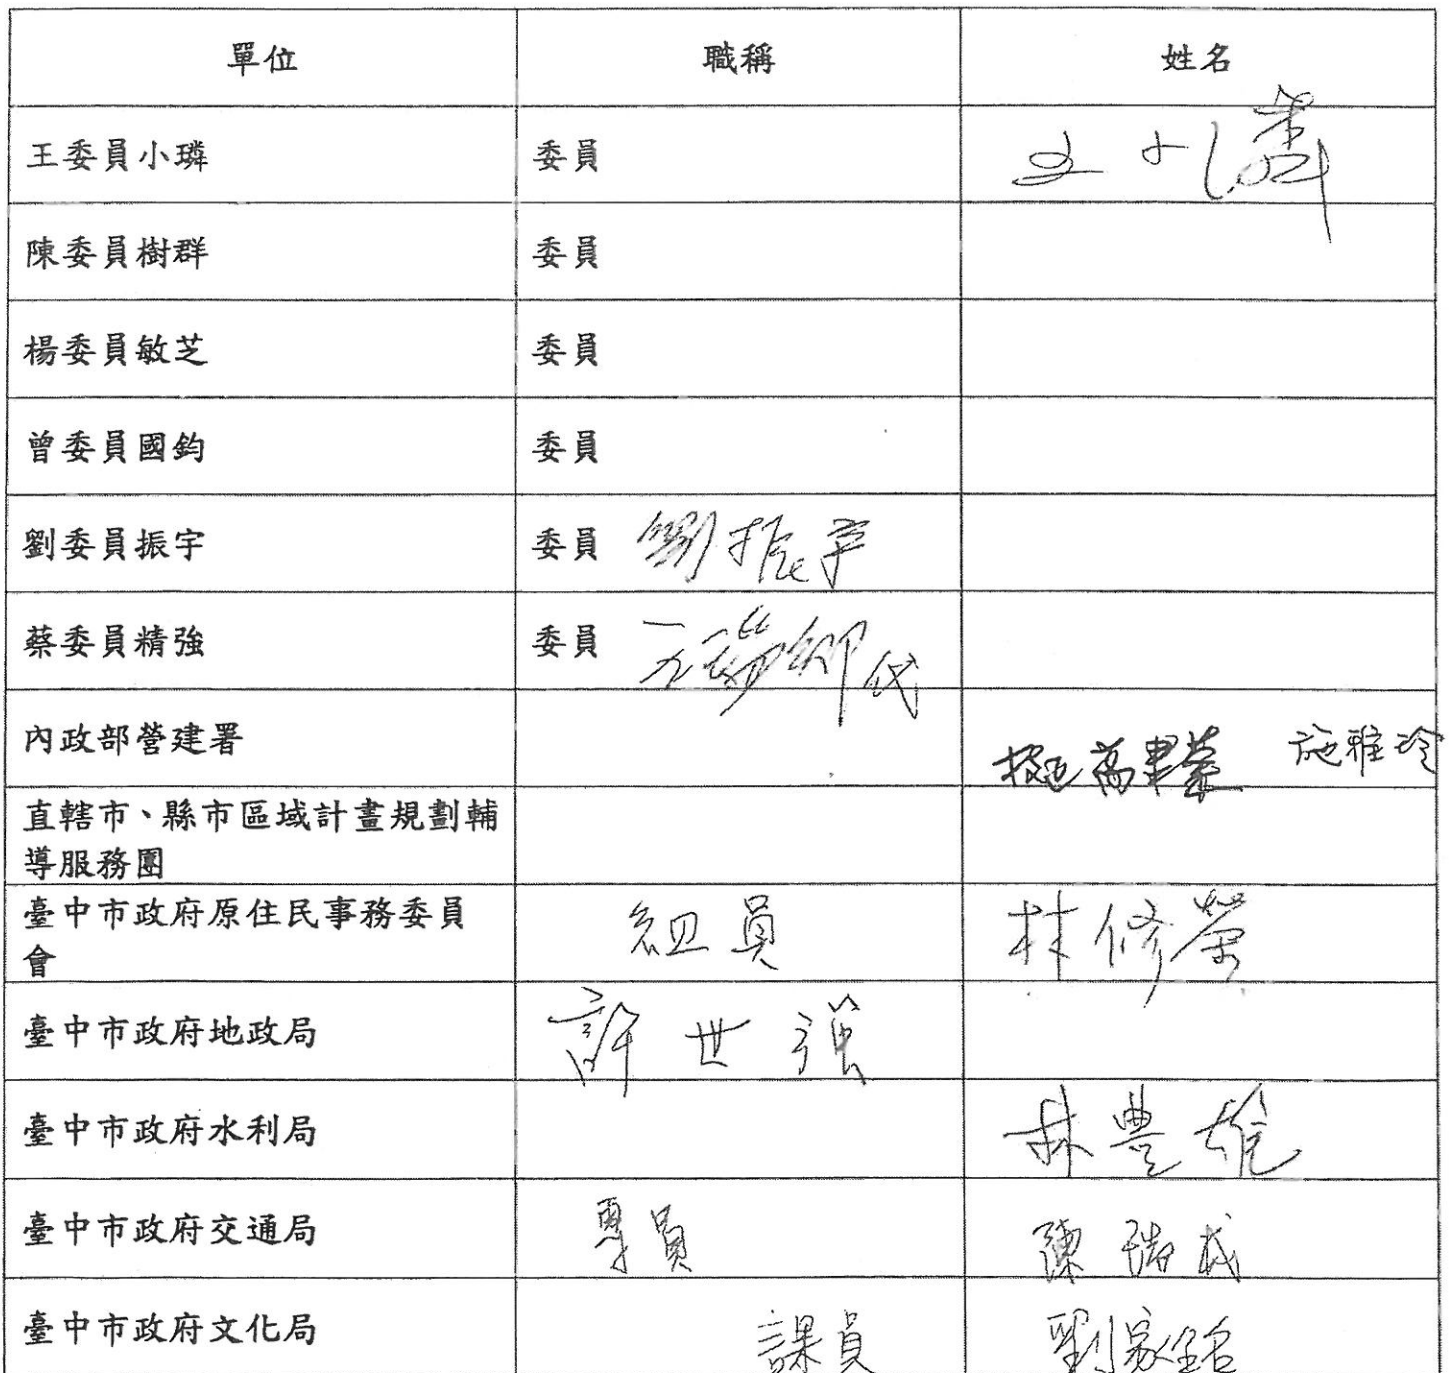 單位 職稱 姓名
王委員小璘 委員 王小璘
陳委員樹群 委員
楊委員敏芝 委員
曾委員國鈞 委員
劉委員振宇 委員 劉振宇
蔡委員精強 委員 代
內政部營建署 施雅玲
直轄市、縣市區域計畫規劃輔
導服務團
臺中市政府原住民事務委員 組員 林修榮
會
臺中市政府地政局 許世強
臺中市政府水利局 林豊雄
臺中市政府交通局 專員 陳瑞成
臺中市政府文化局 課員 劉家銘